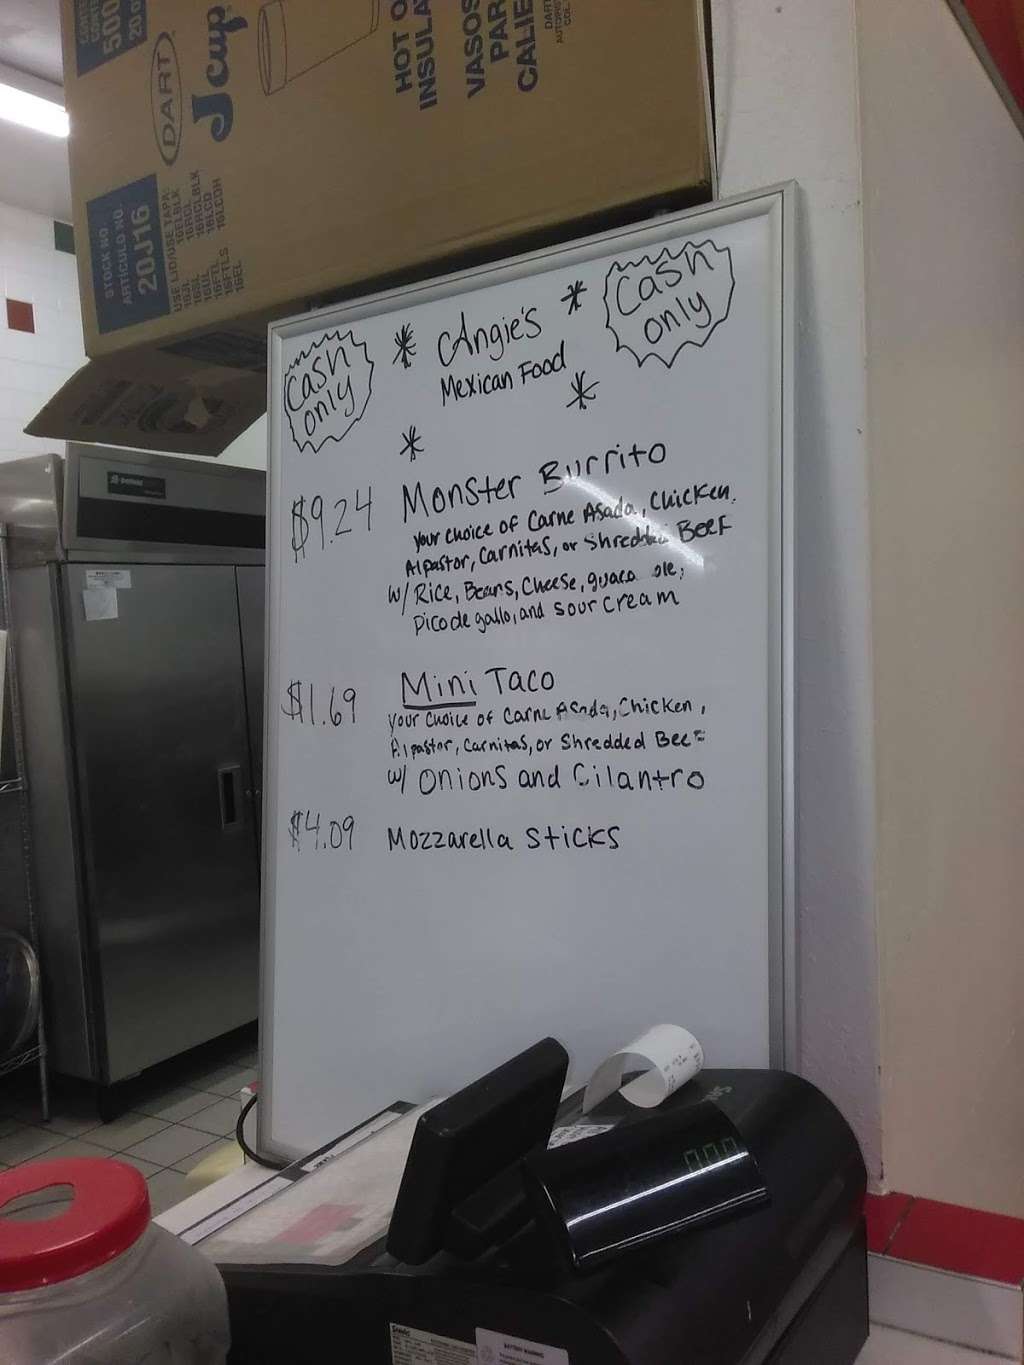 500
20
DART
J cup
HOT
INSULA
VASOS
PAR
CALIE
STOCK NO.
ARTICULO NO.
20J16
USE LID/USE TAPA:
16JL
16SL
16UL
16FTL
16FTLS
16EL
16RCL
16RCLBLK
16LCD
16LCDH
Cash only
Angie's
Mexican Food
Cash only
$9.24 Monster Burrito
Your choice of Carne Asada, Chicken,
Alpastor, Carnitas, or Shredded Beef
w/ Rice, Beans, Cheese, guaca ole,
Pico de gallo, and sour cream
$1.69 Mini Taco
Your choice of Carne Asada, Chicken,
Alpastor, Carnitas, or Shredded Beef
w/ Onions and Cilantro
$4.09 Mozzarella Sticks
0.00